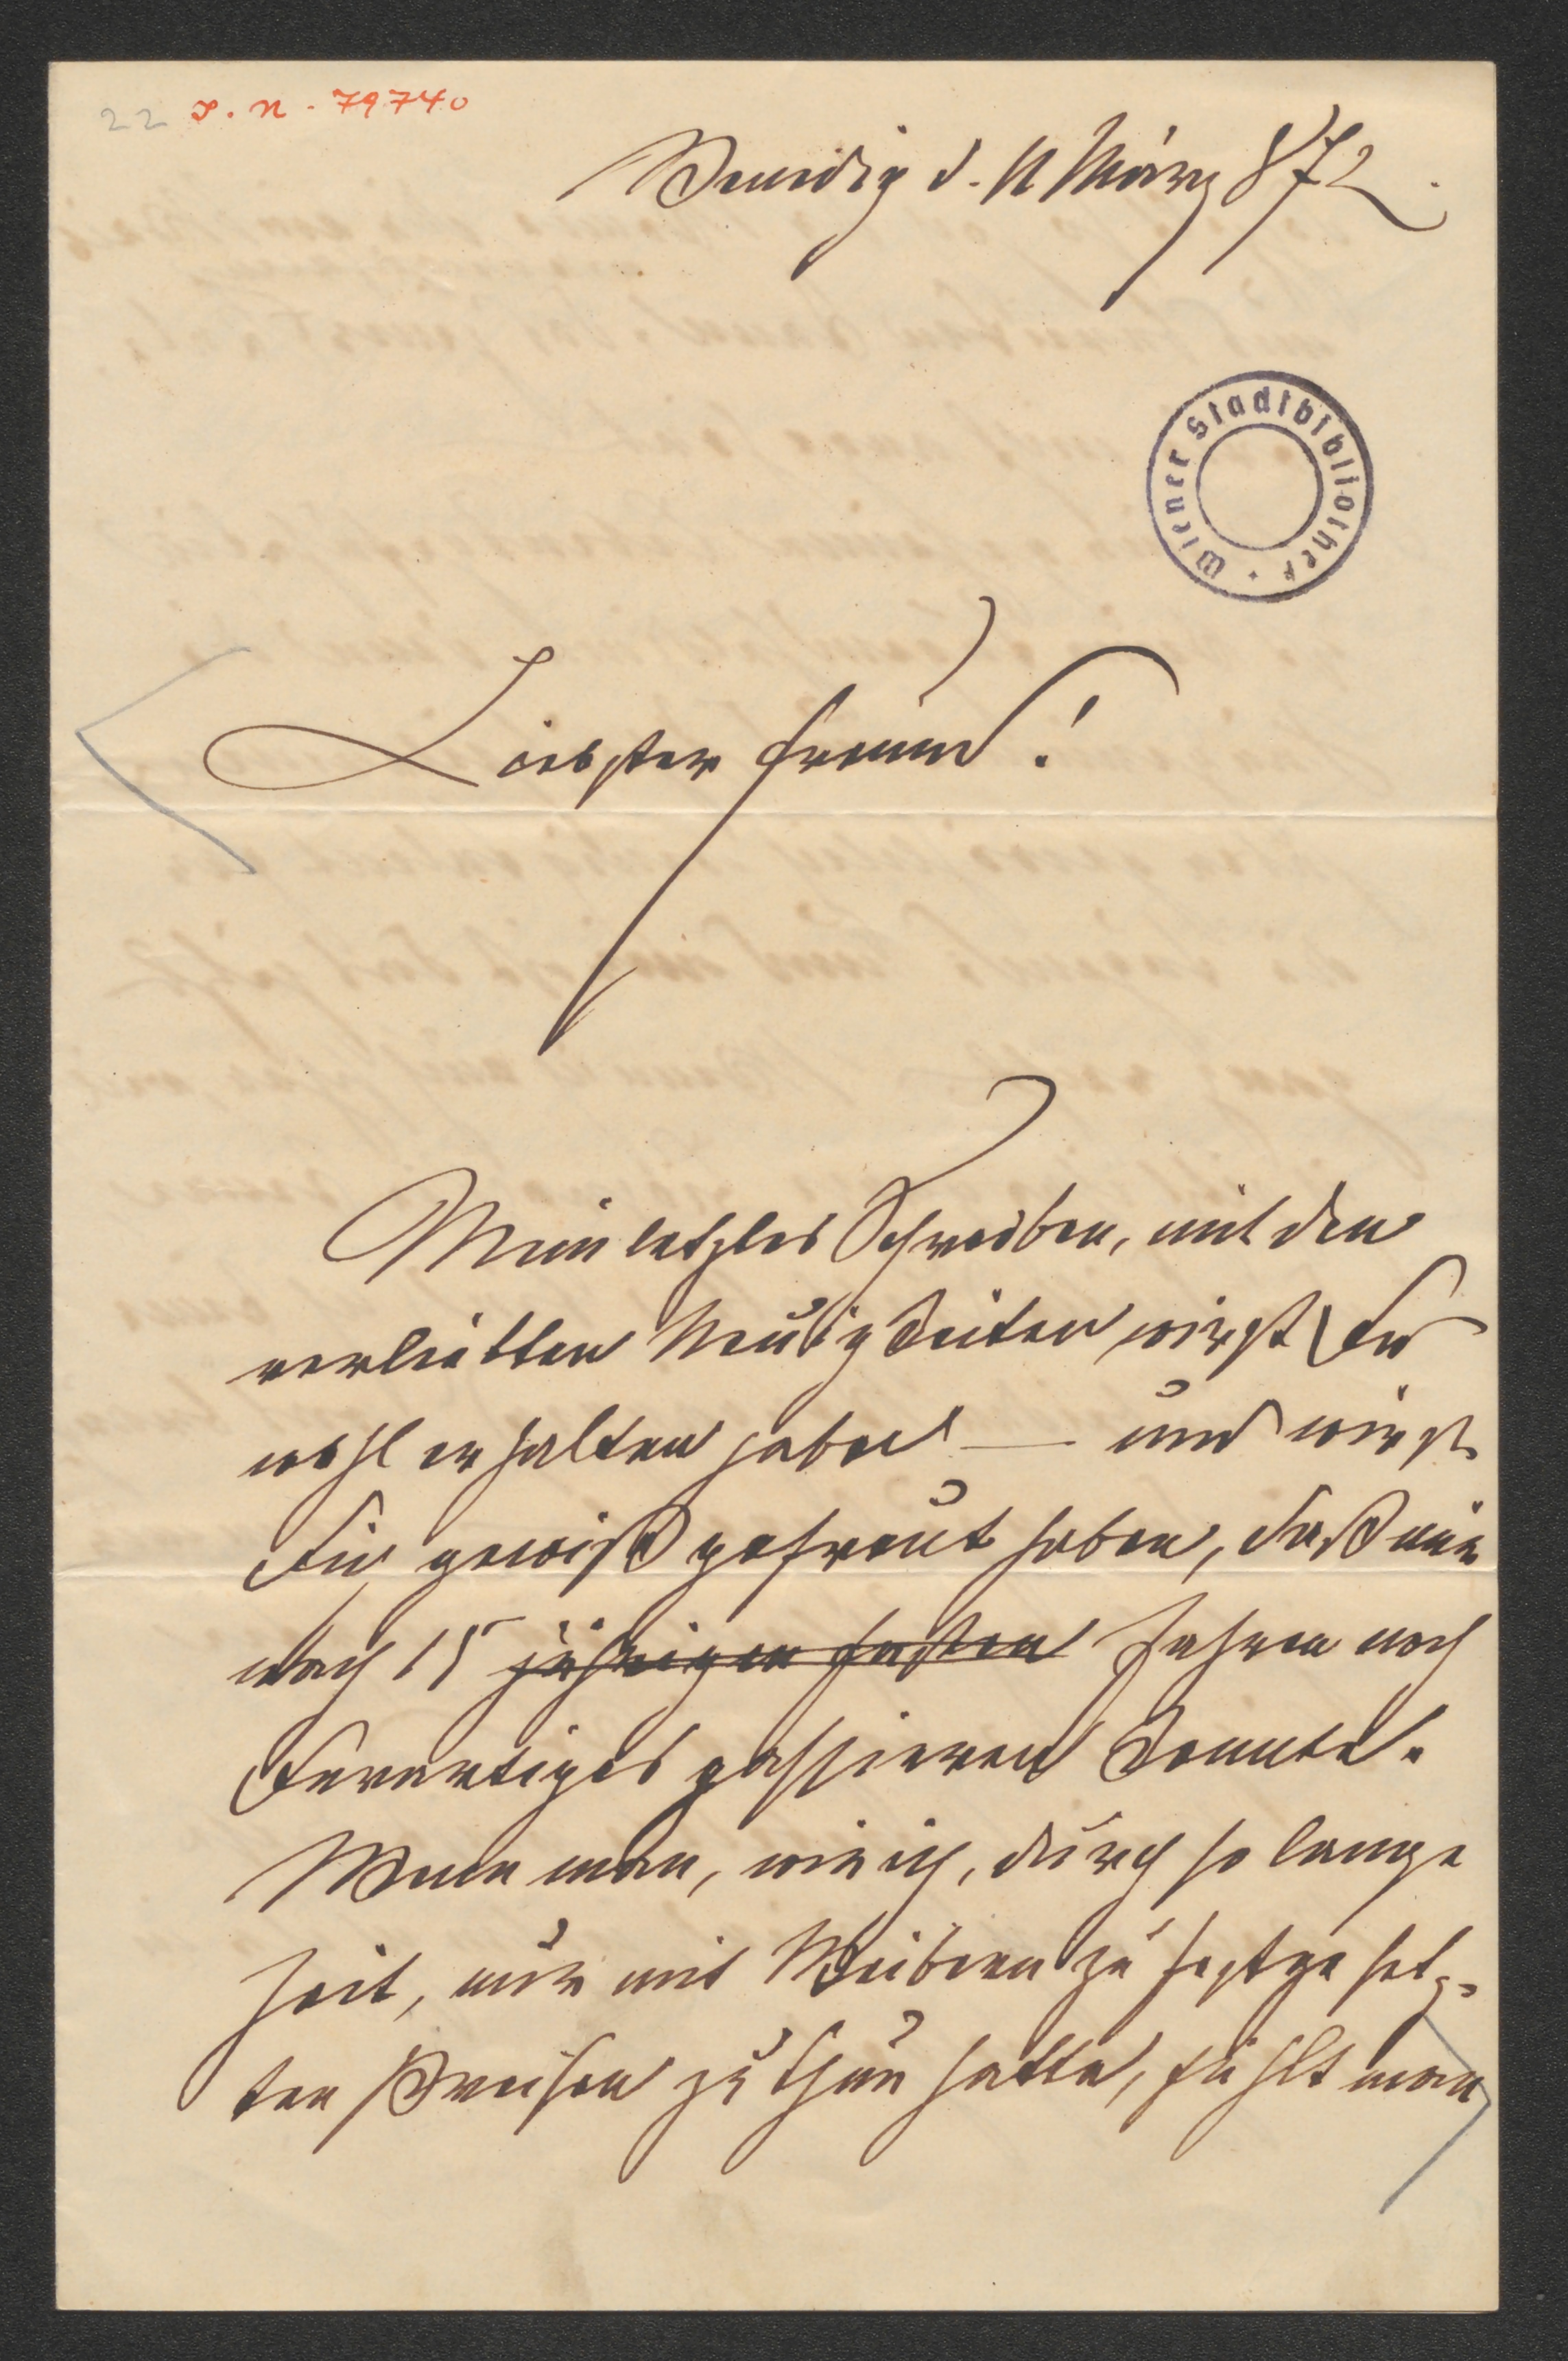 22 I. N. 79740
Venedig d. 11 März 872.
Wiener Stadtbibliothek
Liebster Freund!
Mein letztes Schreiben, mit den
verliebten Neuigkeiten wirst Du
wohl erhalten haben — und wirst
Dich gewiß gefreut haben, daß mir
nach 15 jährigen Fasten Jahren noch
Derartiges passieren konnte.
Wenn man, wie ich, durch so lange
Zeit, nur mit Weibern zu festgesetz-
ten Preisen zu thun hatte, fühlt man